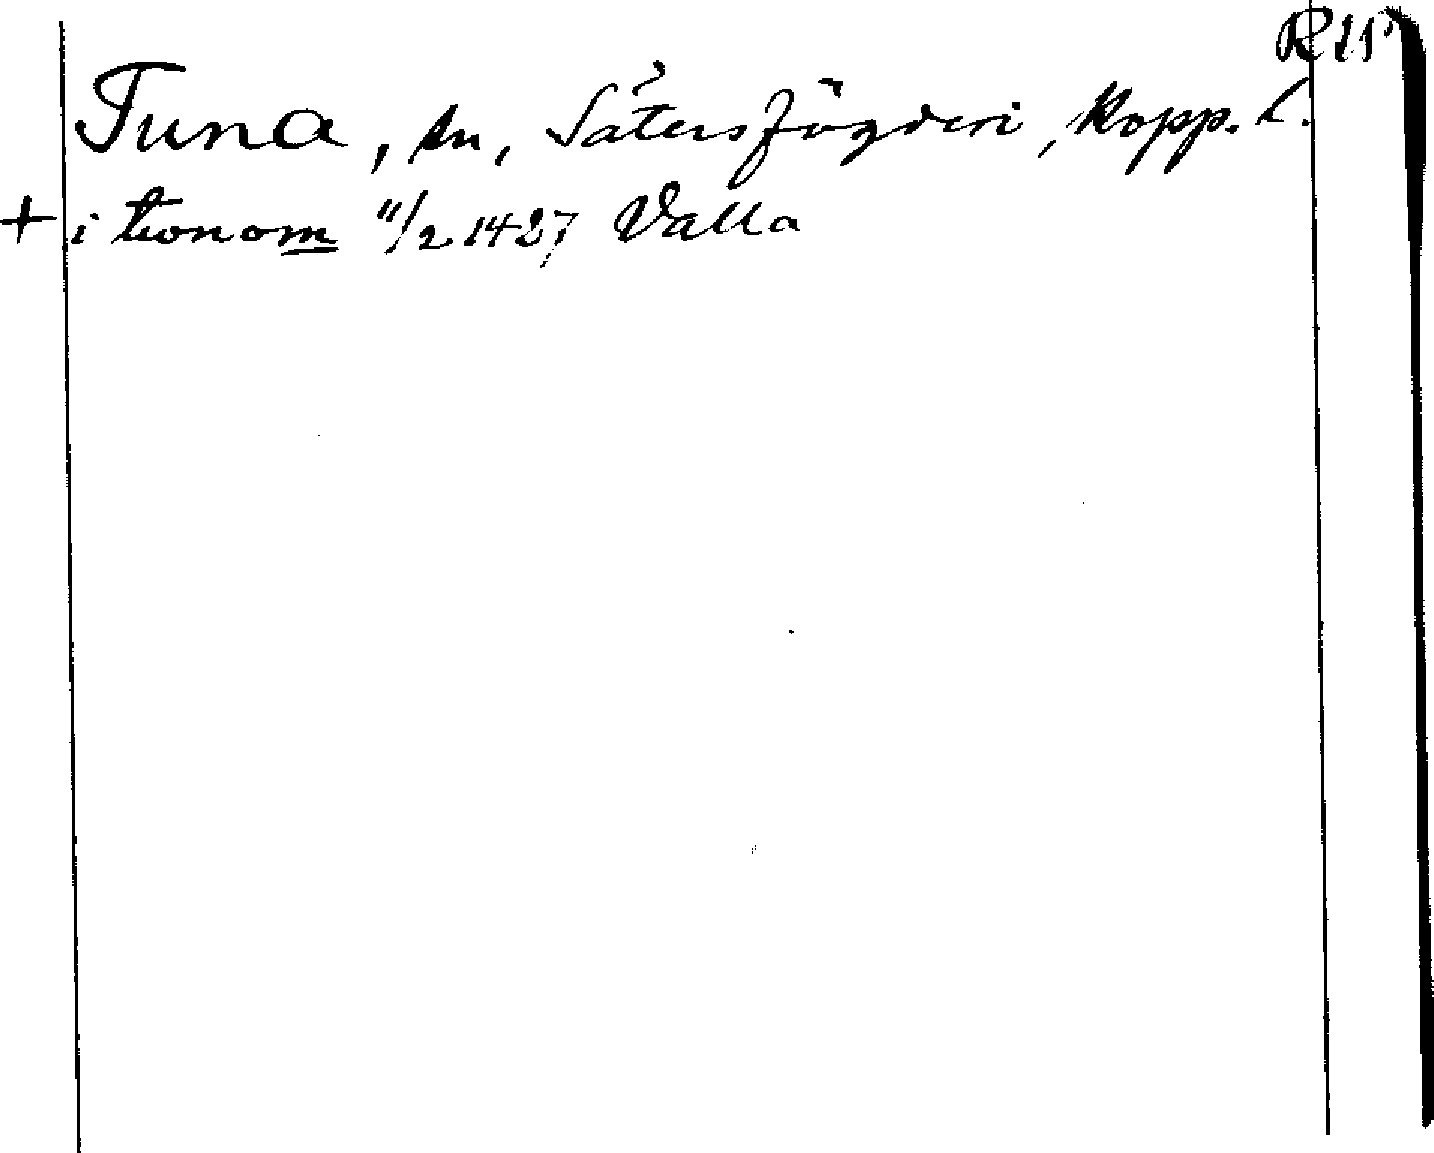 R 11
Tuna, sn, Säters fögderi, Kopp. l.
+ i tionom 11/2 1427 Valla